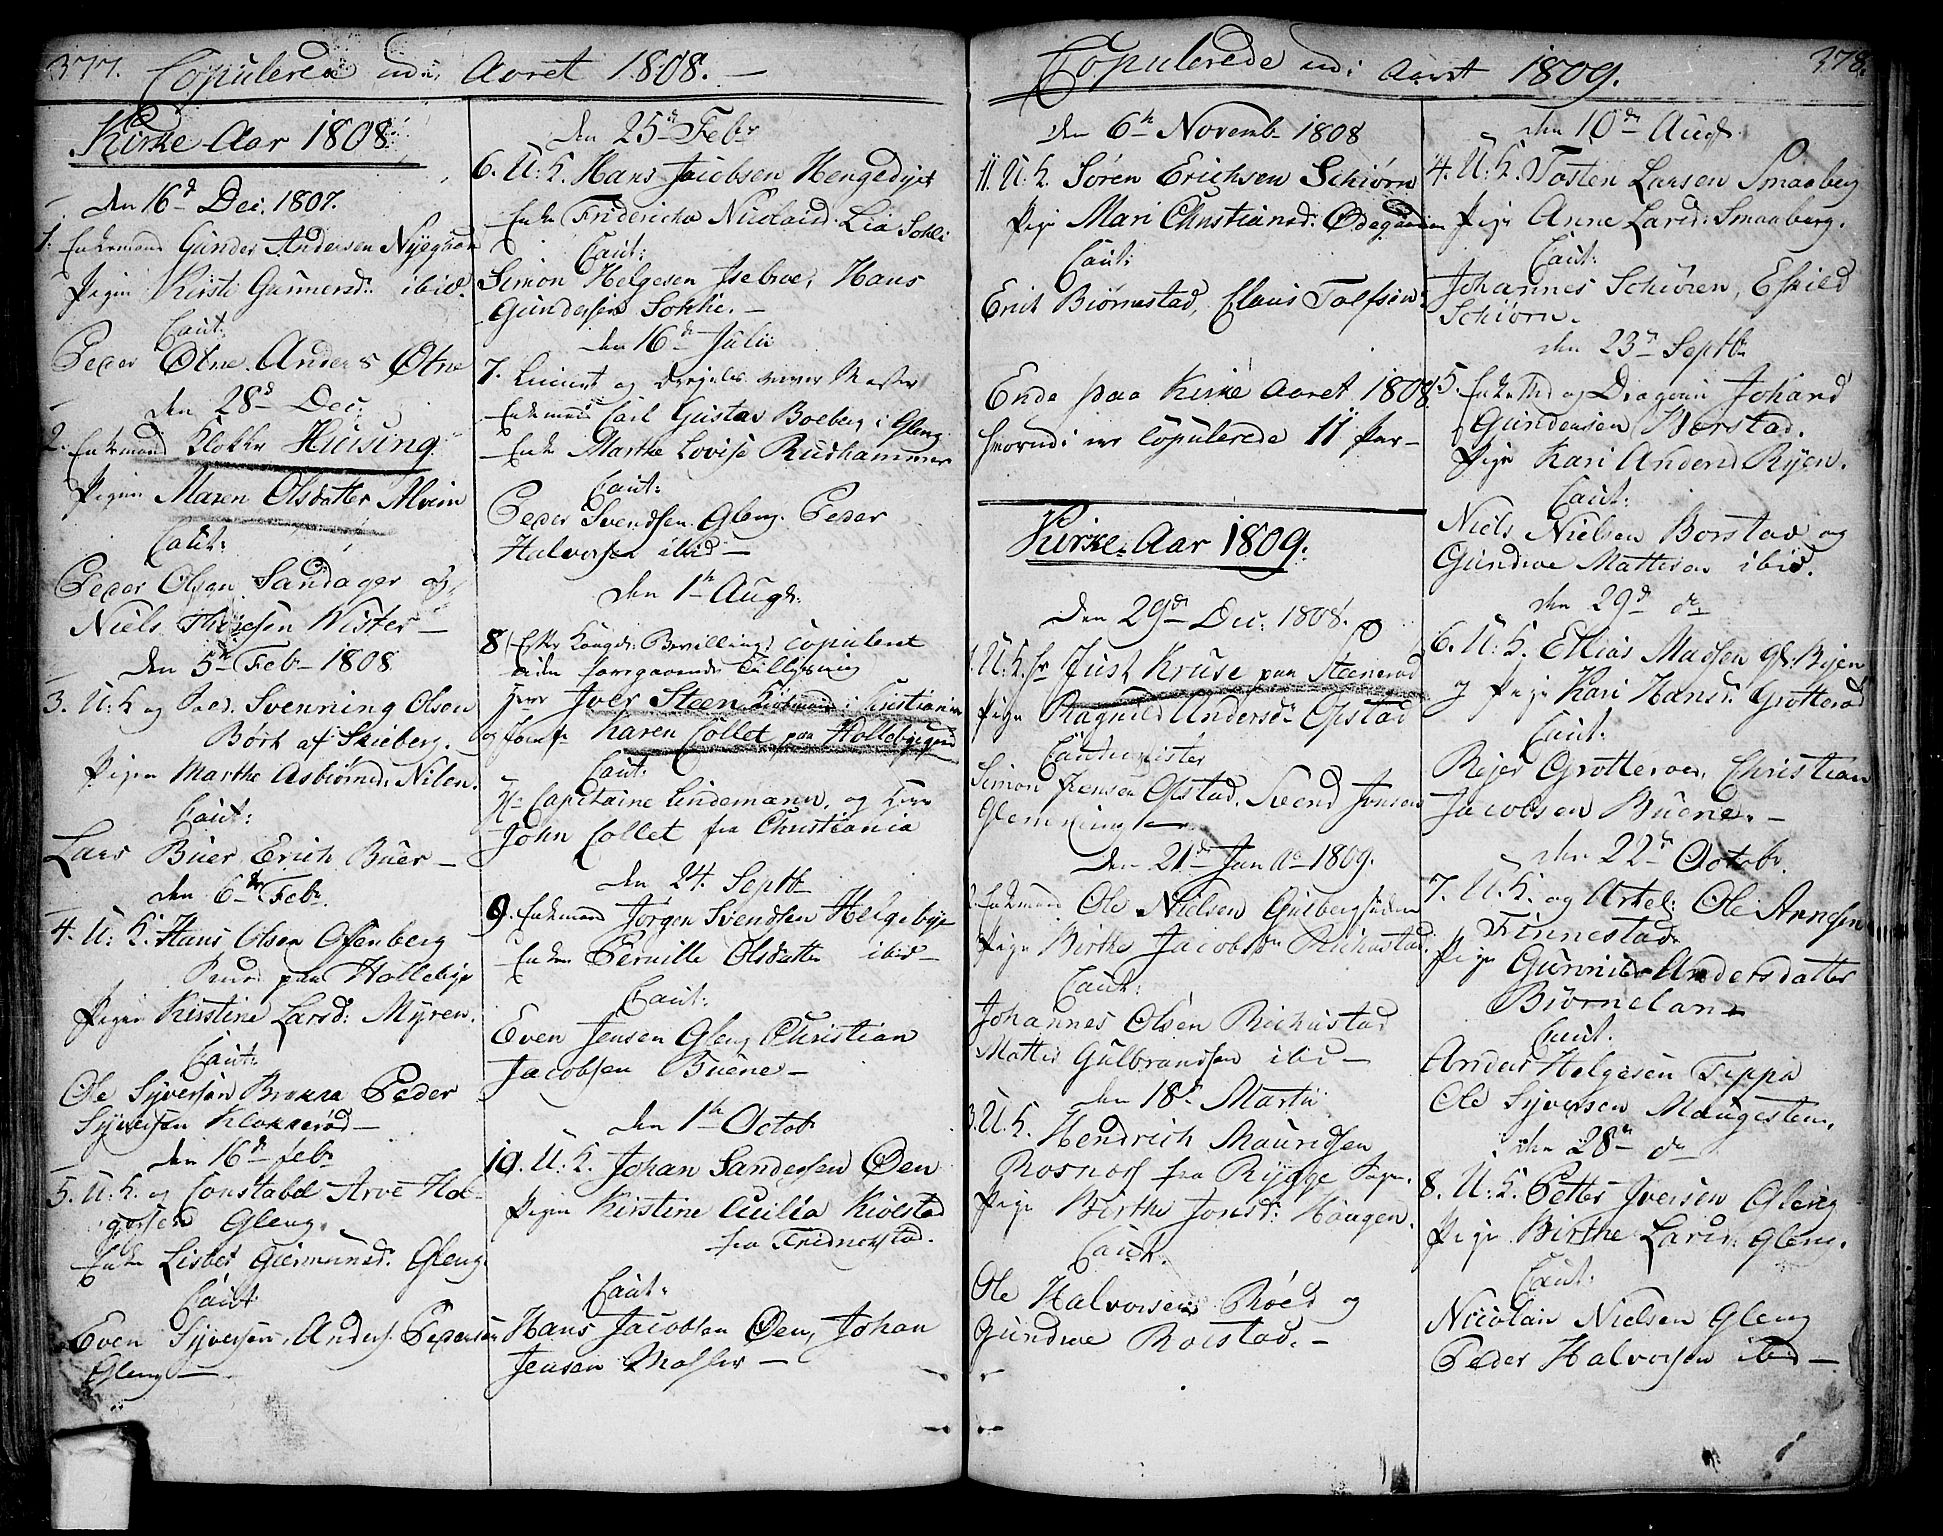 377. Copulerede udi Aaret 1808. —
Kirke Aar 1808.
Den 16d Dec. 1807.
1. Enkemand Gunder Andersen Nygaard
Pigen Kirsti Gunnersd: ibid.
Caut:
Peder Otne. Anders Otne
den 28d Dec:
2. Enkemand Klokker Huusing.
Pigen Maren Olsdatter Alvim
Caut:
Peder Olsen Sandager og
Niels Wister —
Den 5te Febr 1808
3. U: K og Svenning Olsen
Børt af Skieberg.
Pigen Marthe Asbiørnsd: Nilen.
Caut:
Lars Buer Erich Buer —
den 6te Febr.
4. U: K. Hans Olsen Ofenberg
paa Hollebye
Pigen Kirstine Larsd: Myren.
Caut:
Ole Syversøn Brekke Peder
Syversøn Klokkerød —
den 16de febr
5. U: K. og Constabel Arve Hal-
Gleng.
Enke Lisbet Giermunds: Gleng.
Caut
Even Syversen, Anders Pedersen
Gleng —
den 25de Febr
6. U: K. Hans Jacobsen Hengedyet
Enke Fridericha Nicolaisd: Lia Sokli
Caut:
Simon Helgesen Isebroe, Hans
Gundersen Sokkie. —
den 16de Julii
7.
Enkemand Carl Gustav Boeberg i Gleng
Enke Marthe Lovise Rudhammer
Caut:
Peder Svendsen Gleng. Peder
Halvorsen ibid —
den 1te Aug:
8. Efter Kongel: Bevilling: copuleret
uden foregaaende Tillysning
Herr Iver Steen Kiøbmand i Christiania
og Jomfr Karen Collet paa Hollebyegaard
Caut:
Hr Capitaine Lindemann, og Herr
John Collet fra Christiania
den 24. Septb
9. Enkemand Jørgen Svendsen Helgebye
Enken Pernille Olsdatter ibid —
Caut:
Even Jensen Gleng Christian
Jacobsen Buene —
den 1te Octob
10. U: K. Johan Sandersen Oen
Pigen Kirstine Cicilia Kiolstad
fra Fridrichstad.
Caut:
Hans Jacobsen Oen, Johan
Jensen —
Copulerede udi Aaret 1809. 378.
den 6te Novemb 1808
11. U: K. Søren Erichsen Schiørn
Pige Mari Christiansd: Ødegaarden
Caut:
Erich Biørnestad, Claus Tolfsen
Ende paa Kirke Aaret 1808.
hvorudi er copulerede 11 Par —
Kirke-Aar 1809.
Den 29de Dec: 1808.
1. U: K. Hr Just Kruse paa Stenerød
Pige Ragnild Andersdr Opstad
Cautionister
Simon Jensen Opstad. Svend Jensen
Glemminge
Den 21de Jan ao 1809.
2. Enkemand Ole Nielsen Gulbergsuden
Pige Birthe Jacobsd Richustad.
Caut:
Johannes Olsen Richustad
Mattis Gulbrandsen ibid —
den 18de Martii
3. U: K. Hendrich Mauridsen
Rosnos fra Rygge Sogn.
Pige Birthe Jonsd: Haugen.
Caut.
Ole Halvorsen Røed og
Gundroe Rolstad. —
den 10de Aug:
4. U: K. Tosten Larsen Smaaberg
Pige Anne Larsd: Smaaberg.
Caut:
Johannes Schiøren, Eskild
Schiørn.
den 23de Septb
5. Enkemd og Dragoun Johand
Gundersen Borstad.
Pige Kari Andersd Ryen.
Caut:
Niels Nielsen Borstad og
Gundroe Mattesen ibid.
den 29de do
6. U: K. Ellias Madsen gl: Ryen
og Pige Kari Hansd: Grotterød
Caut:
Rejer Grotterød, Christian
Jacobsen Buene. —
den 22de Octobr.
7. U: K. og Artel: Ole Arnesen
Finnestad
Pige Gunnild Andersdatter
Biørneland
Caut.
Anders Helgesen Teppa
Ole Syversen Haugesten.
den 28de do
8. U: K. Petter Iversen Gleng
Pige Birthe Larsd: Gleng.
Caut:
Nicolai Nielsen Gleng
Peder Halvorsen ibid —